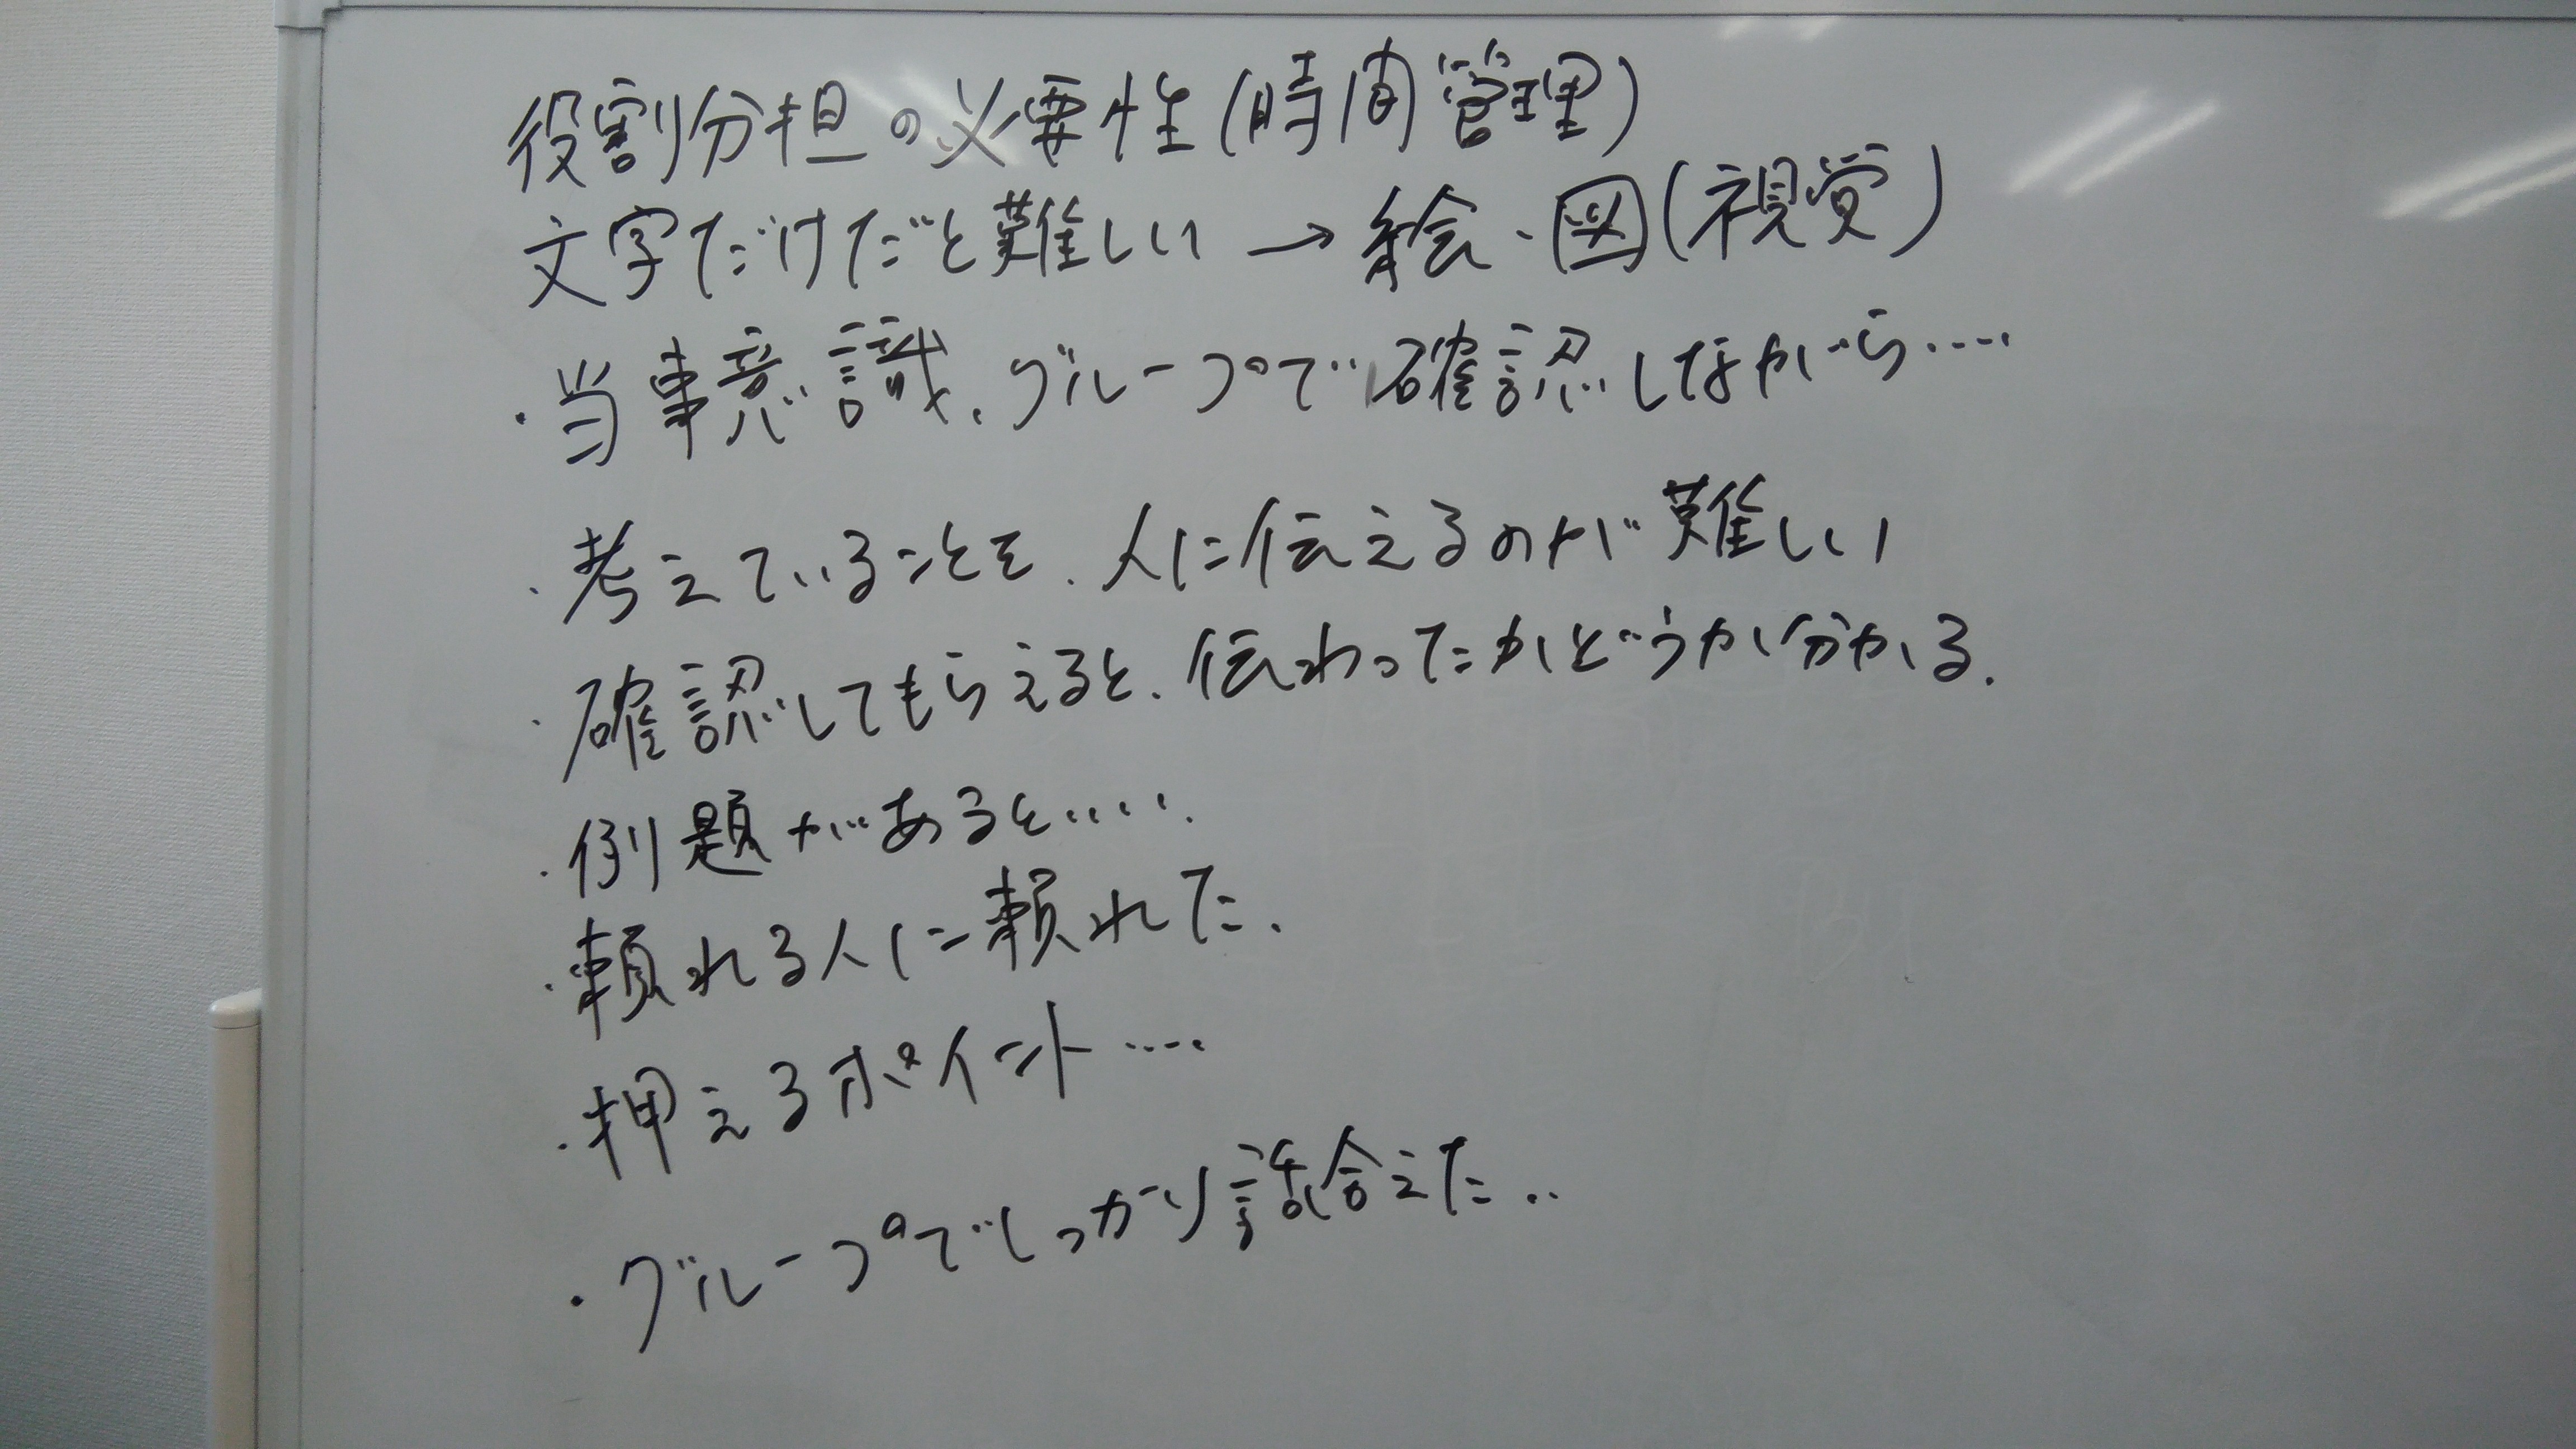 役割分担の必要性(時間管理)
文字だけだと難しい→絵、図(視覚)
・当事意識、グループで確認しながら‥‥
・考えていることを、人に伝えるのが難しい
・確認してもらえると、伝わったかどうか分かる.
・例題があると‥‥.
・頼れる人に頼れた.
・押えるポイント‥‥
・グループでしっかり話合えた‥